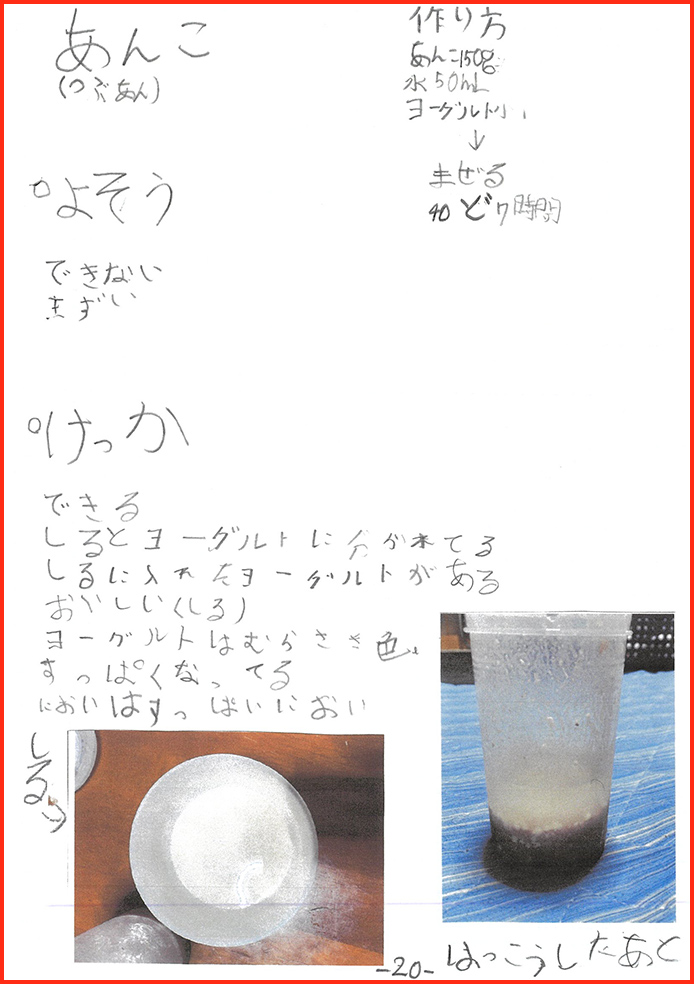 あんこ
(つぶあん)
作り方
あんこ150g
水50mL
ヨーグルト小1
↓
まぜる
40ど7時間
○よそう
できない
まずい
○けっか
できる
しるとヨーグルトに分かれてる
しるに入れたヨーグルトがある
おいしい(しる)
ヨーグルトはむらさき色。
すっぱくなってる
においはすっぱいにおい
しる
はっこうしたあと
-20-